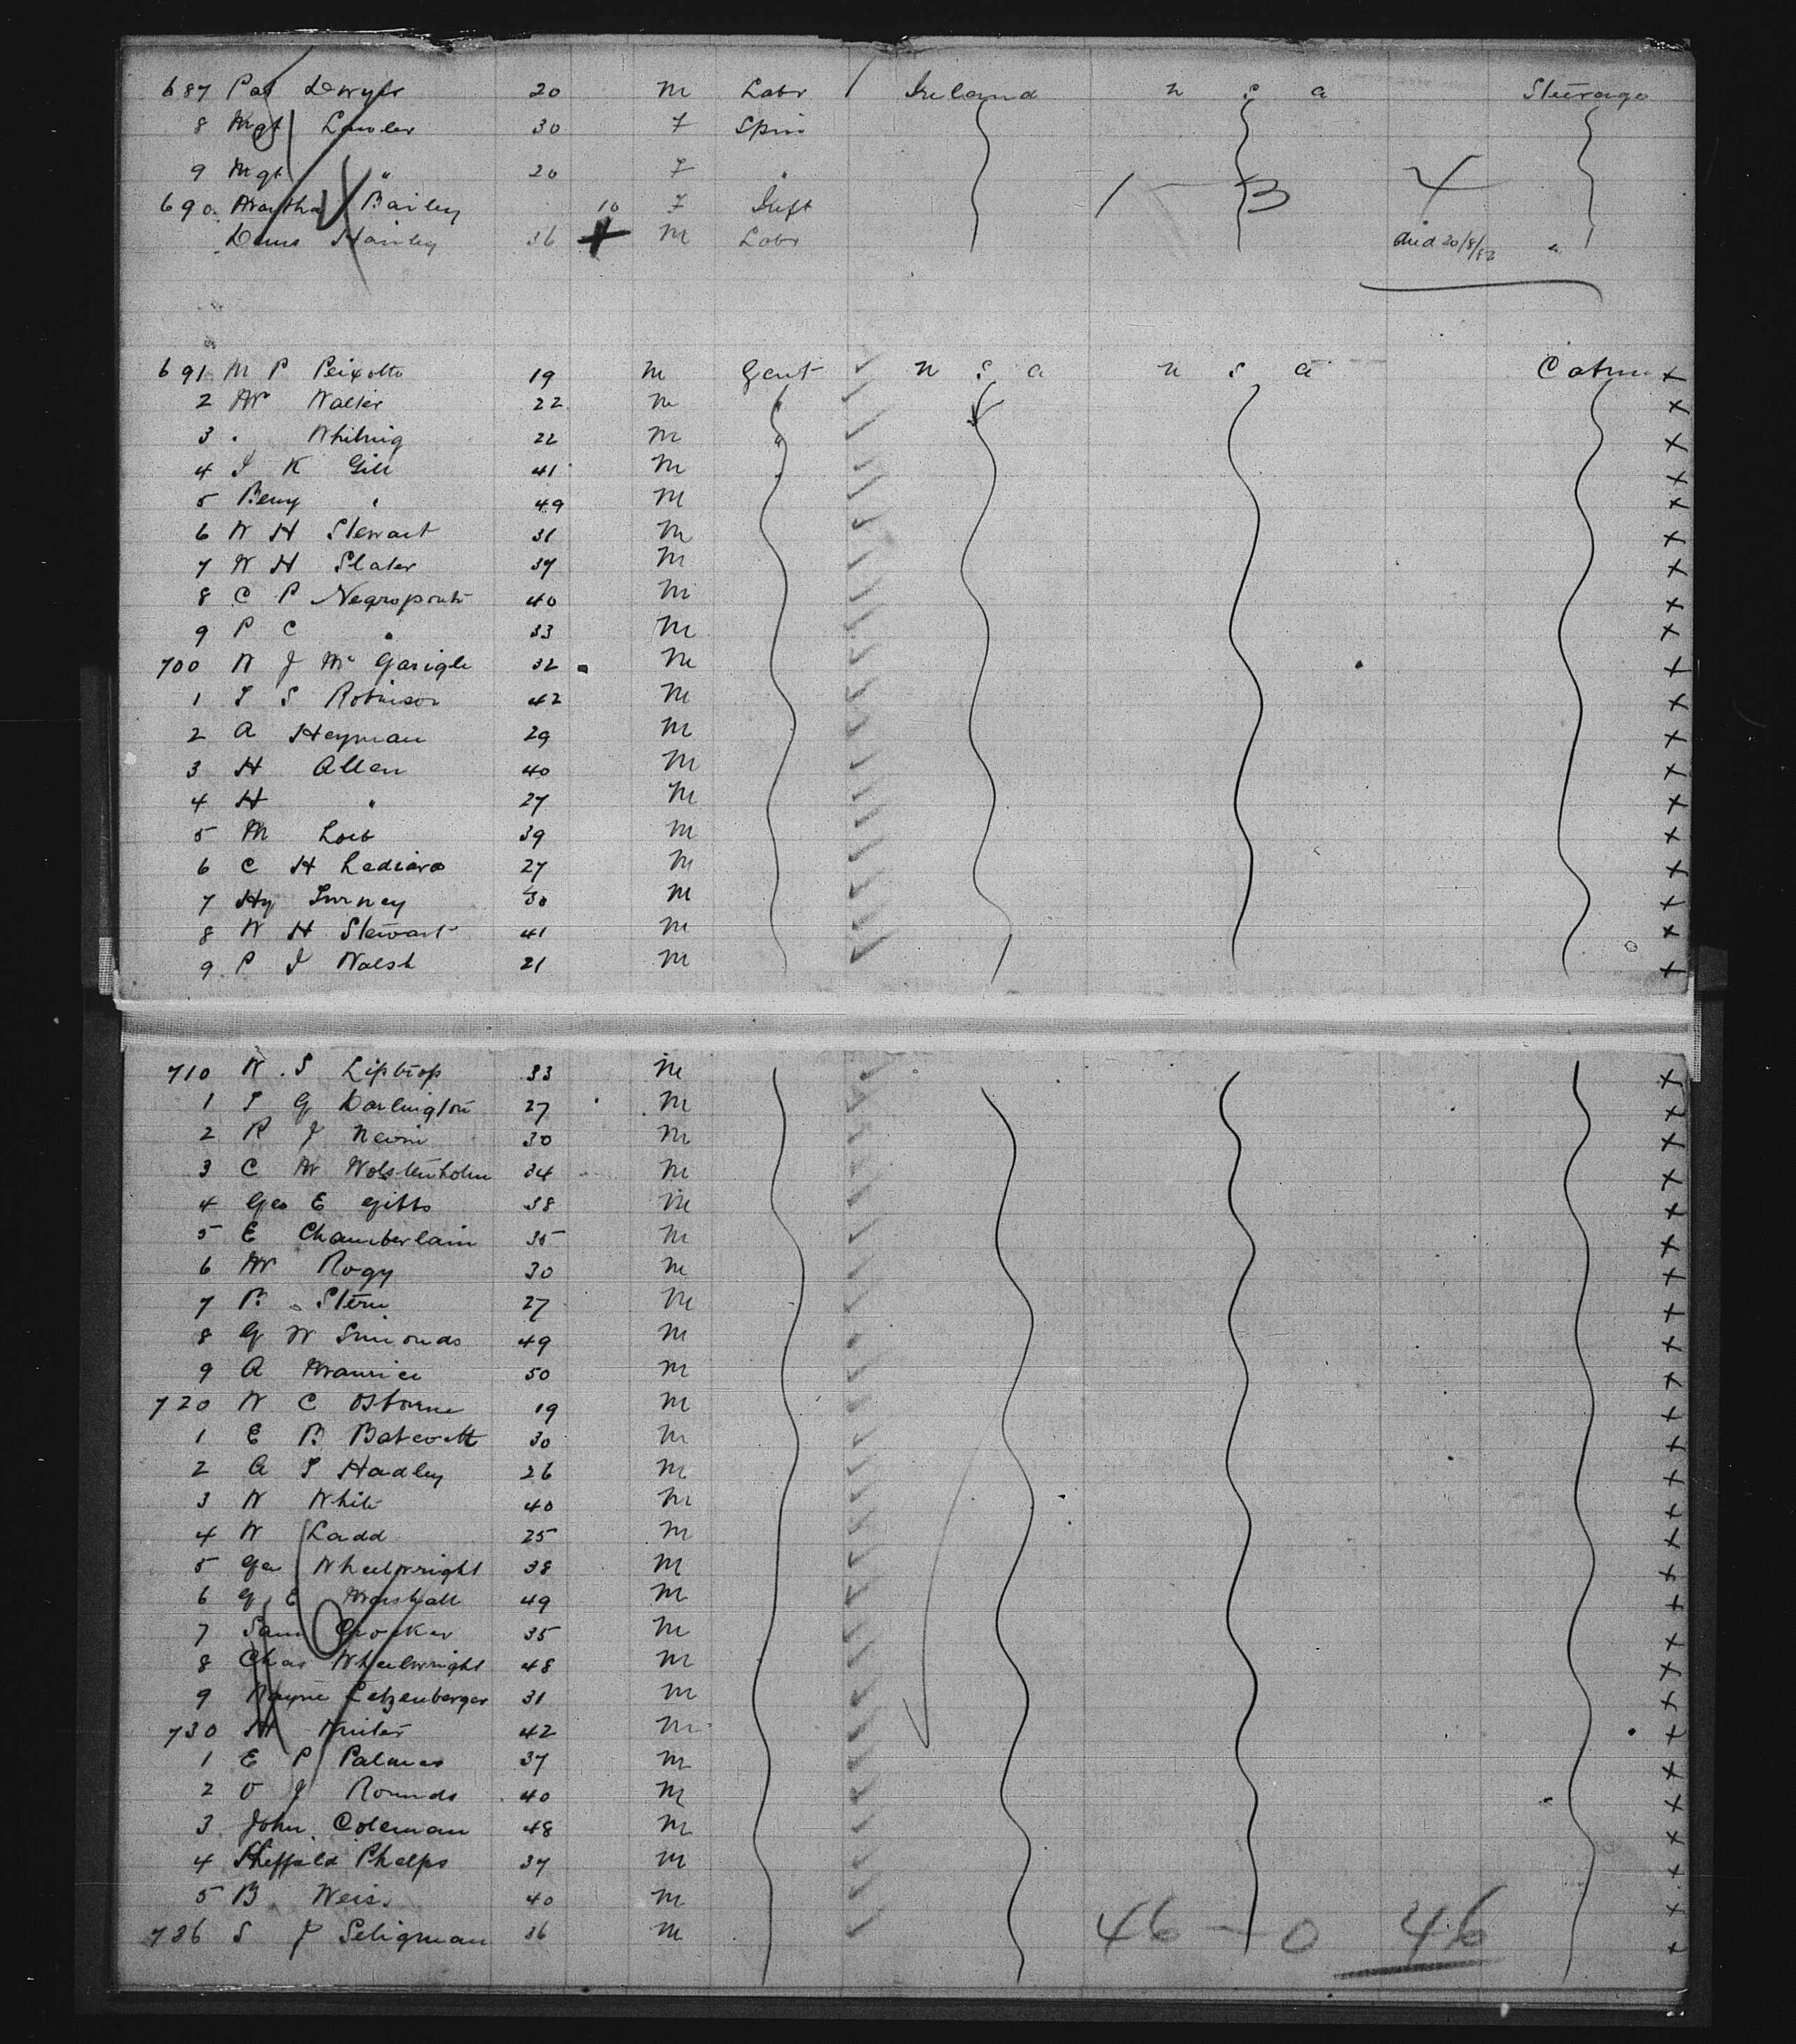 687 Pat Dwyer 20 M Labr Ireland U S A Steerage
8 Mgt Lawler 30 F Spin
9 Mgt " 20 F "
690 Martha Bailey 10 F Inft 1 - 3 4
Denis Hanley 36 M Labr died 20/8/82 "
691 M P Peixotto 19 M Gent U S A U S A Cabin
2 Mr Walter 22 M "
3 " Whiting 22 M "
4 J K Gill 41 M
5 Benj " 49 M
6 W H Stewart 31 M
7 W H Slater 37 M
8 C P Negroponte 40 M
9 P C " 33 M
700 W J Mc Garigle 32 M
1 T S Robinson 42 M
2 A Heyman 29 M
3 H Allen 40 M
4 H " 27 M
5 M Loeb 39 M
6 C H 27 M
7 Hy 30 M
8 W H Stewart 41 M
9 P J Walsh 21 M
710 W. S Liptrop 33 M
1 T G Darlington 27 M
2 R J 30 M
3 C M Wolstenholm 34 M
4 Geo E Gibbs 38 M
5 E Chamberlain 35 M
6 Mr Rogy 30 M
7 B. Stern 27 M
8 G W Simonds 49 M
9 A Maurice 50 M
720 W C Osborne 19 M
1 E B 30 M
2 A T Hadley 26 M
3 W White 40 M
4 W Ladd 25 M
5 Geo Wheelwright 38 M
6 G E Marshall 49 M
7 Sam Crocker 35 M
8 Chas Wheelwright 48 M
9 Wayne Letzenberger 31 M
730 M 42 M
1 E P Palmer 37 M
2 O J Rounds 40 M
3 John Coleman 48 M
4 Sheffield Phelps 37 M
5 B Weis. 40 M
736 S J Seligman 36 M 46 - 0 46